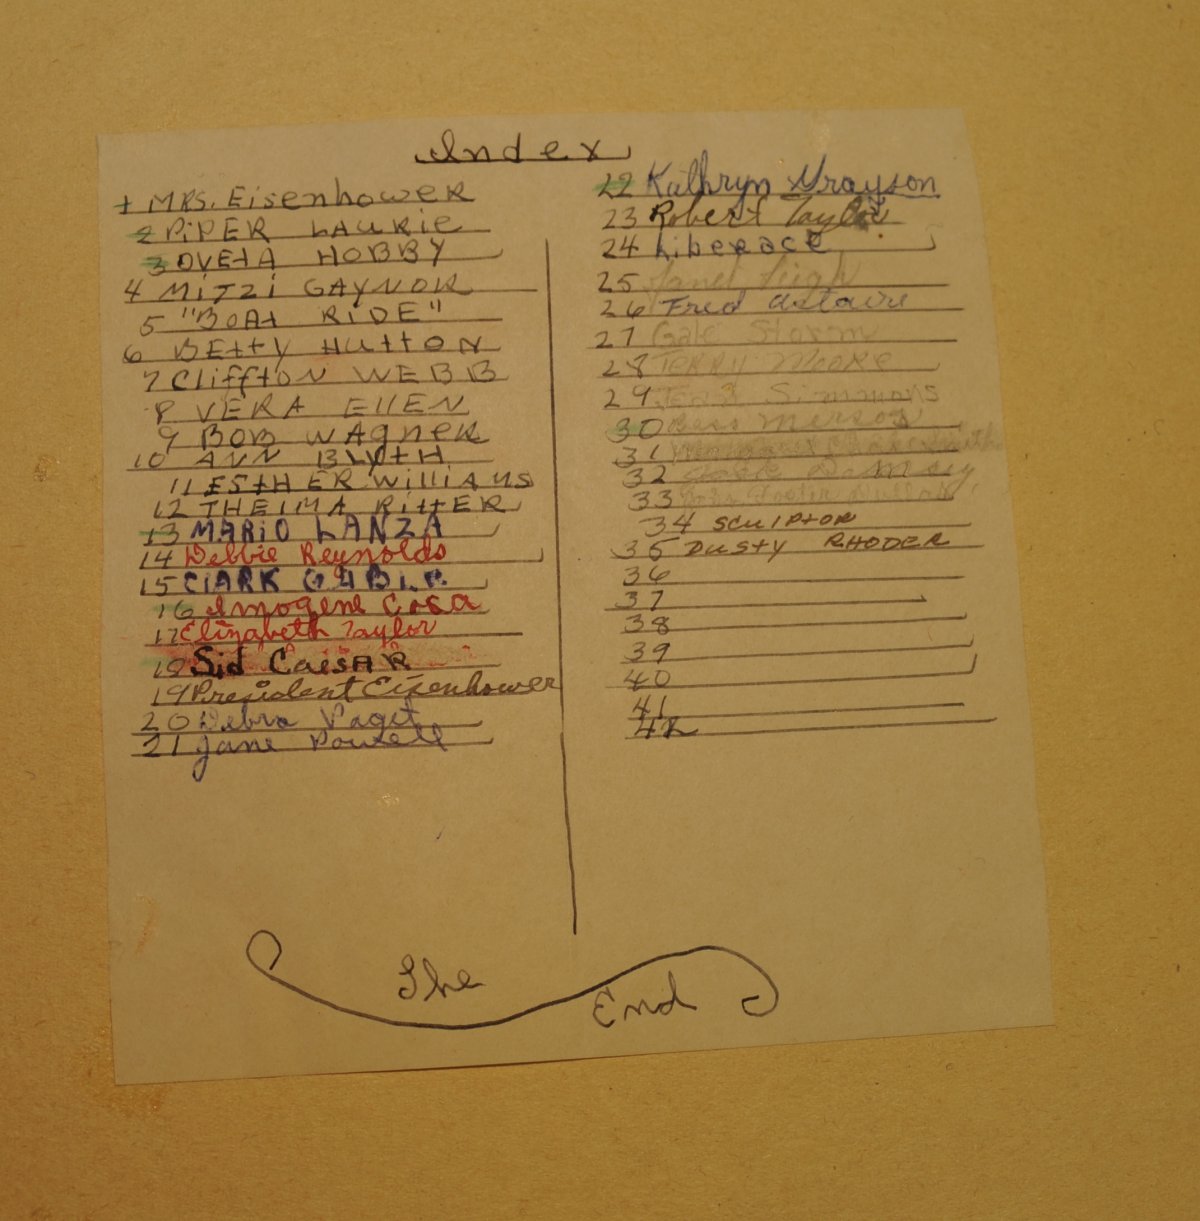 Index
1 MRS. Eisenhower
2 PiPER LAURie
3 OVEtA HOBBY
4 MiTZi GAYNOR
5 "BOAt RIDE"
6 BEttY HuttON
7 CliffTON WEBB
8 VERA EllEN
9 BOB WAgNER
10 ANN BlytH
11 EStHER WilliAMS
12 THElMA RittER
13 MARiO LANZA
14 Debbie Reynolds
15 ClARK GABLE
16 Imogene Coca
17 Elizabeth Taylor
18 Sid CaesAR
19 President Eisenhower
20 Debra Paget
21 Jane Powell
22 Kathryn Grayson
23 Robert Taylor
24 Liberace
25 Janet Leigh
26 Fred Astaire
27 Gale Storm
28 TERRY MOORE
29 Jean Simmons
30 Bess
31
32
33 John Foster Dulles
34 SCulPtOR
35 DUSTY RHODER
36
37
38
39
40
41
42
The
End